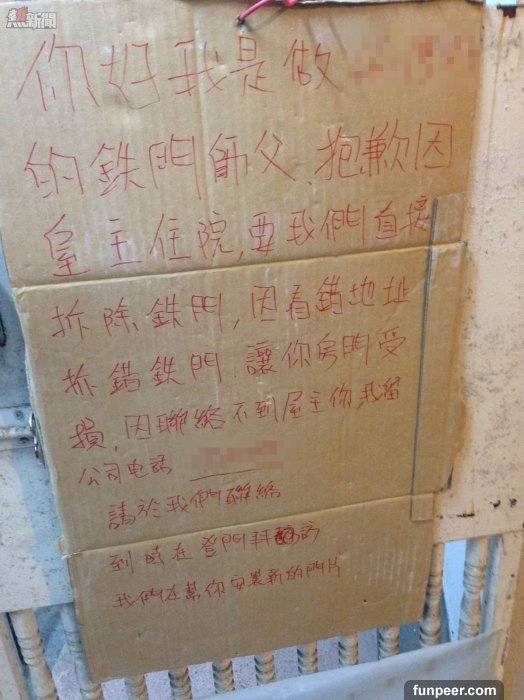 熱新聞
你好我是做
的鉄門師父、抱歉因
皇主住院,要我們直接
拆除鉄門,因看錯地址
拆錯鉄門 讓你房門受
損,因聯絡不到屋主你,我留
公司电話
請於我們聯絡
到時在登門拜訪
我們在幫你安裝新的門片
funpeer.com